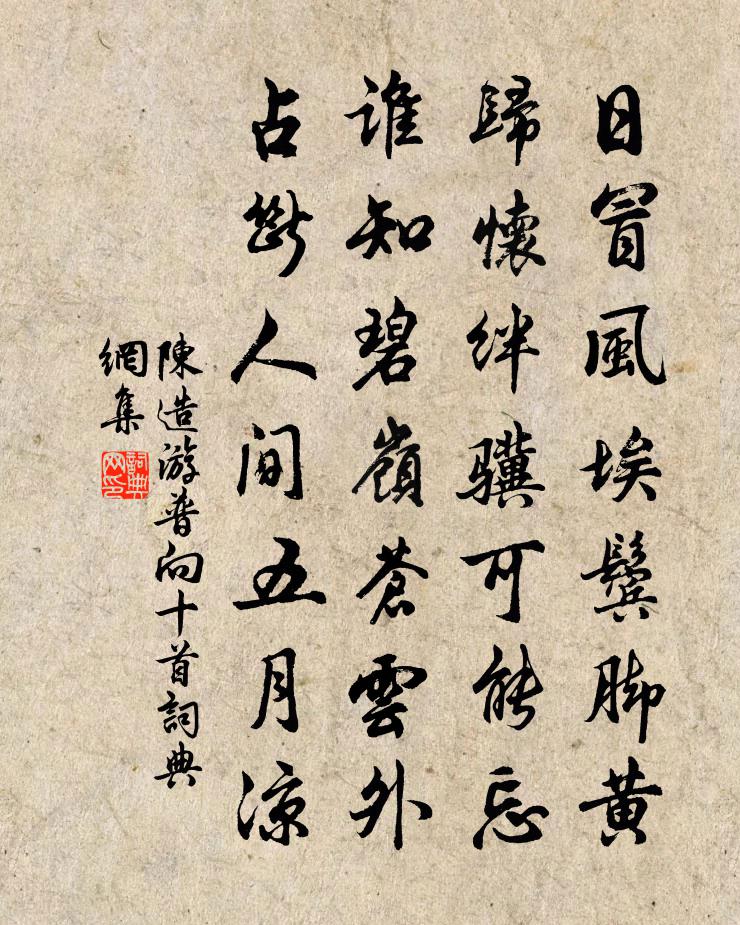 日冒風埃鬢脚黄
歸懷絆驥可能忘
誰知碧嶺蒼雲外
占斷人间五月凉
陳造游普向十首詞典
網集
詞典
网印